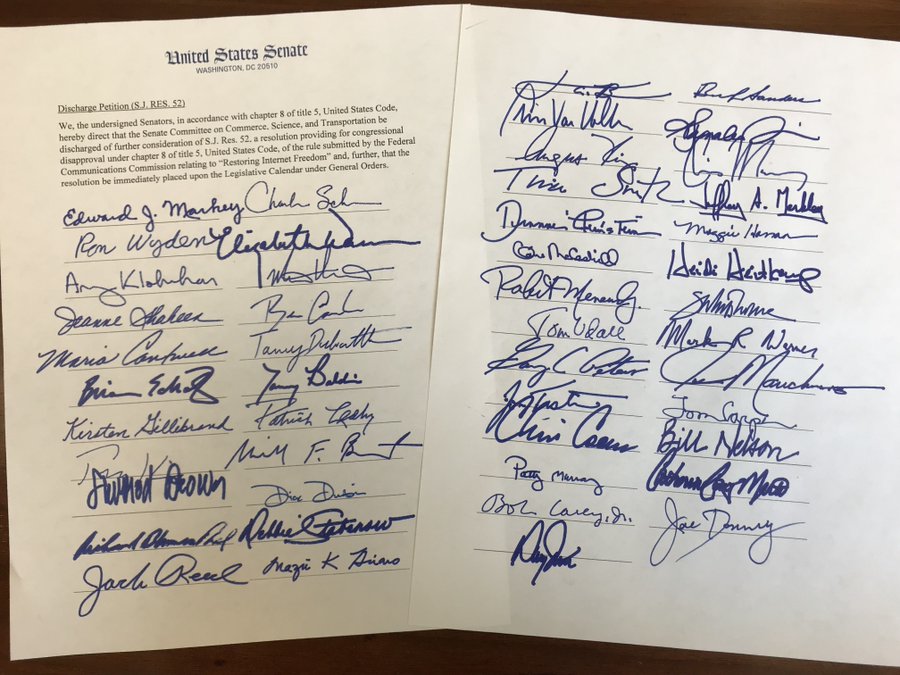 United States Senate
WASHINGTON, DC 20510
Discharge Petition (S.J. RES. 52)
We, the undersigned Senators, in accordance with chapter 8 of title 5, United States Code,
hereby direct that the Senate Committee on Commerce, Science, and Transportation be
discharged of further consideration of S.J. Res. 52, a resolution providing for congressional
disapproval under chapter 8 of title 5, United States Code, of the rule submitted by the Federal
Communications Commission relating to “Restoring Internet Freedom” and, further, that the
resolution be immediately placed upon the Legislative Calendar under General Orders.
Edward J. Markey
Ron Wyden Elizabeth Warren
Amy Klobuchar
Jeanne Shaheen Ben Cardin
Maria Cantwell Tammy Duckworth
Brian Schatz Tammy Baldwin
Kirsten Gillibrand Patrick Leahy
F.
Sherrod Brown Dick Durbin
Richard Blumenthal Debbie Stabenow
Jack Reed Mazie K Hirono
Chris Van Hollen
Angus King Chris Murphy
Tina Smith Jeffrey A. Merkley
Dianne Feinstein Maggie Hassan
Heidi Heitkamp
Robert Menendez
Tom Udall Mark R Warner
Gary C Peters Joe Manchin
Jon Tester Tom Carper
Chris Coons Bill Nelson
Patty Murray Catherine Cortez Masto
Bob Casey, Jr. Joe Donnelly